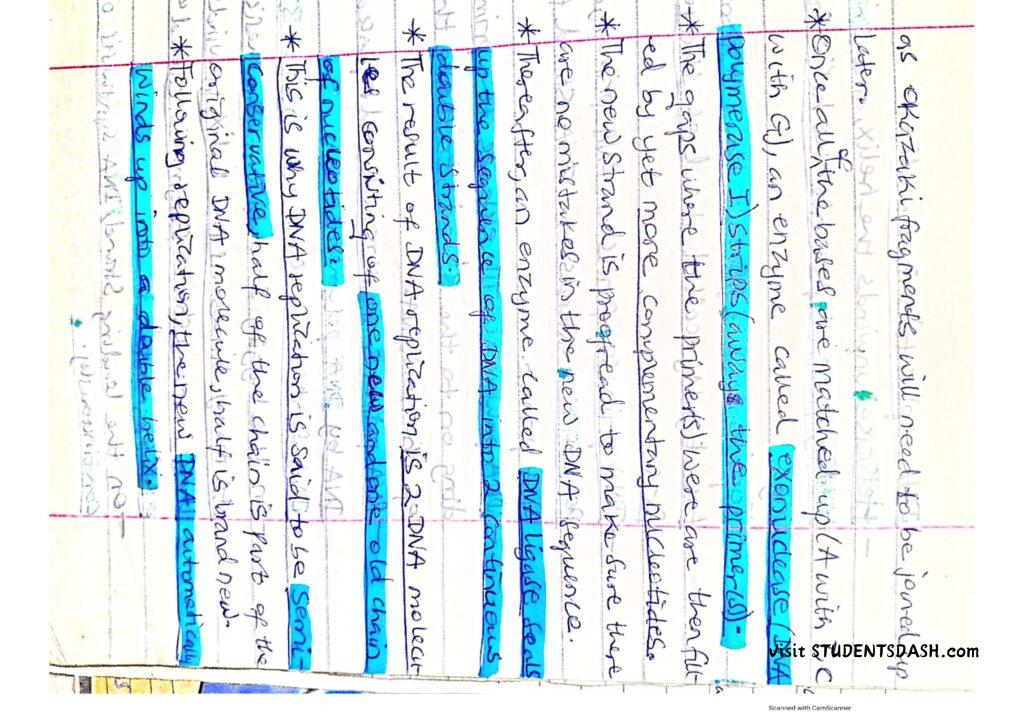 as okazaki fragments will need to be joined up
later.
* Once all of the bases are matched up (A with T, C
with G), an enzyme called exonuclease (DNA
polymerase I) strips (away the primer(s).
* The gaps where the primer(s) were are then fill
ed by yet more complementary nucleotides.
* The new strand is proofread to make sure there
are no mistakes in the new DNA sequence.
* Thereafter, an enzyme called DNA ligase seals
up the sequence of DNA into 2 continuous
double strands.
* The result of DNA replication is 2 DNA molecu
les consisting of one new and one old chain
of nucleotides.
* This is why DNA replication is said to be semi-
conservative, half of the chain is part of the
original DNA molecule, half is brand new.
* Following replication, the new DNA automatically
winds up into a double helix.
visit STUDENTSDASH.com
Scanned with CamScanner